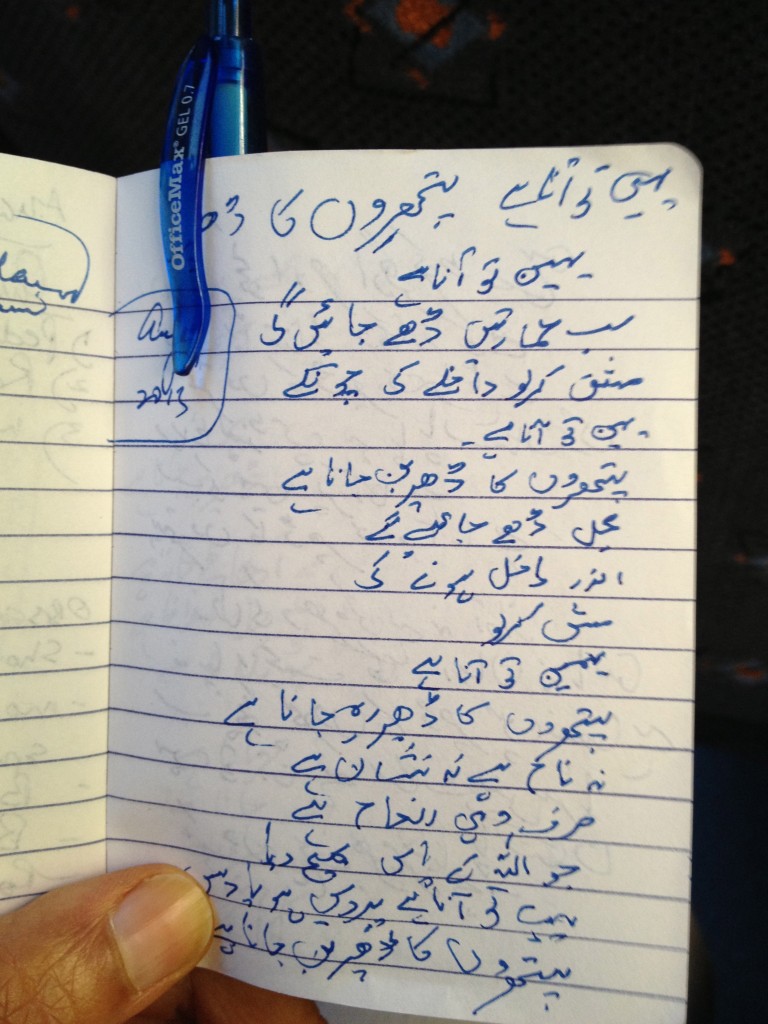 یہیں تو آنا ہے پتھروں کا ڈھ
یہیں تو آنا ہے
سب عمارتیں ڈھے جائیں گی
مشق کرلو داخلے کی
یہیں تو آنا ہے۔
پتھروں کا ڈھیر بن جانا ہے
محل ڈھے جائیں گے
اندر داخل ہونے کی
مشق کرلو
یہیں تو آنا ہے
پتھروں کا ڈھیر رہ جانا ہے
نہ نام ہے نہ نشان ہے
صرف وہی انعام ہے
جو اللہ نے بھیج دیا
یہیں تو آنا ہے پردیس ہو یا دیس
پتھروں کا ڈھیر بن جانا ہے
Aug
2013
OfficeMax® GEL 0.7